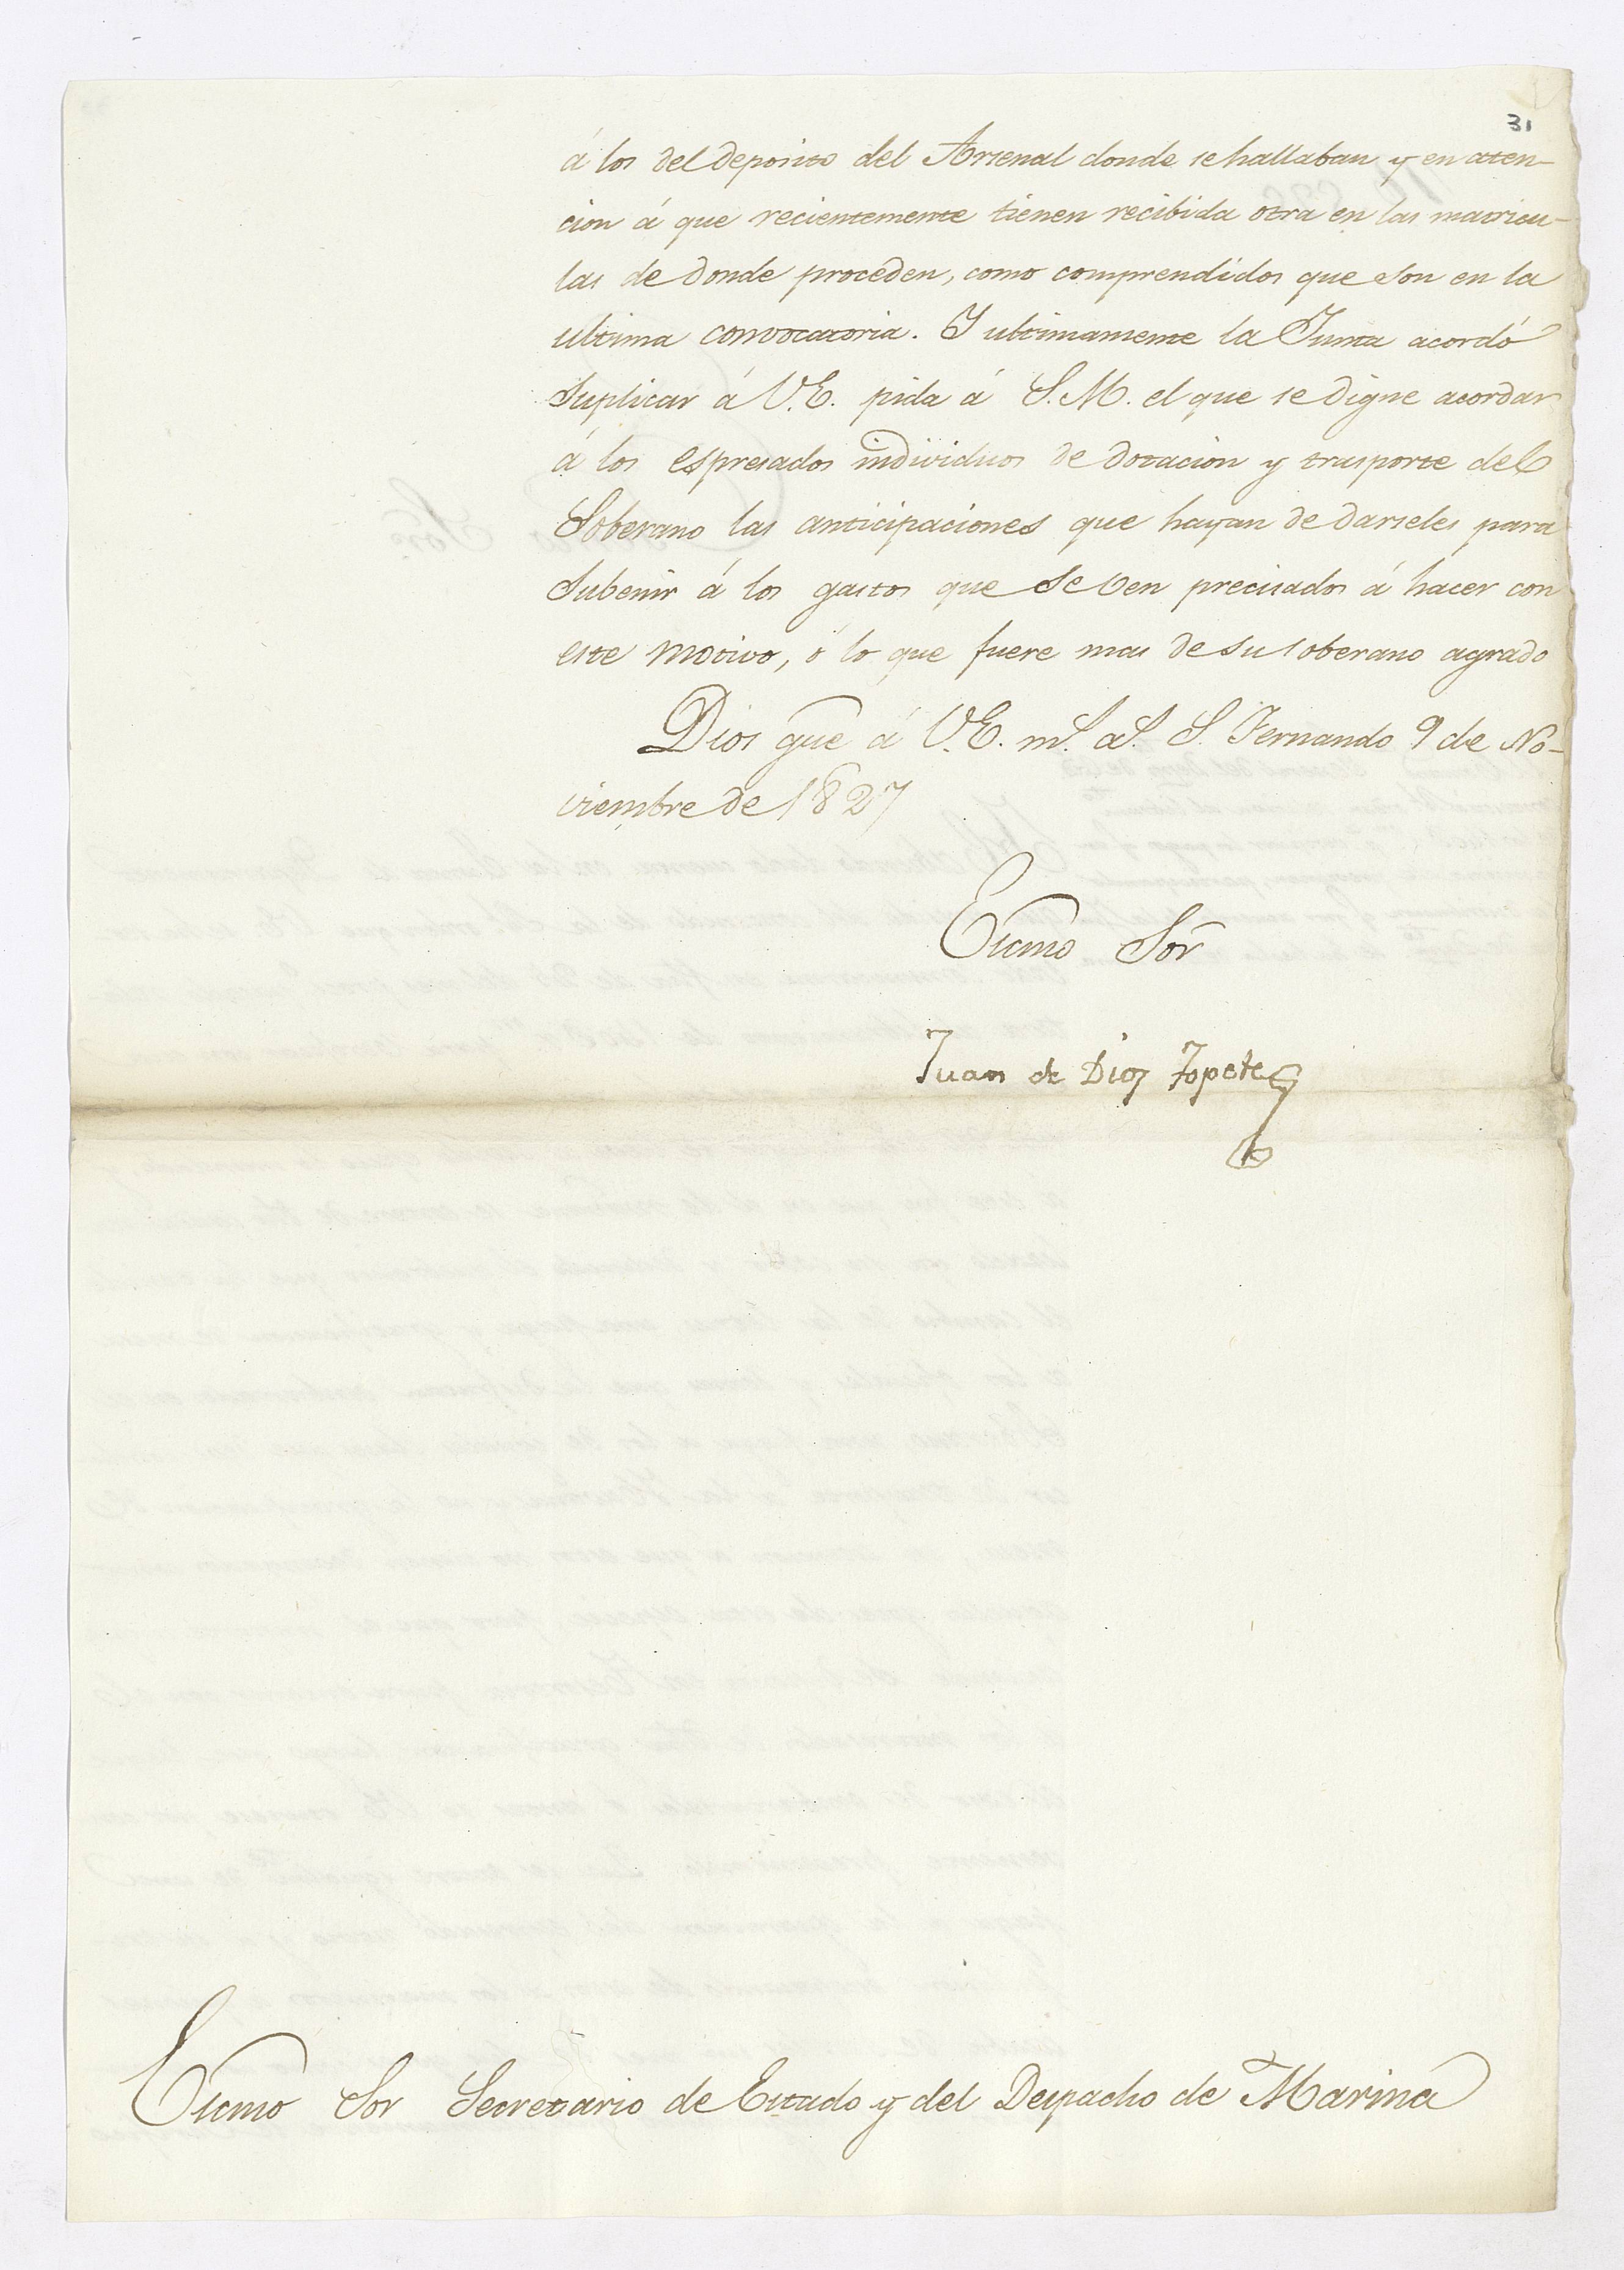 31
á los del deposito del Arsenal donde se hallaban y en aten-
cion á que recientemente tienen recibida otra en las matricu-
las de donde proceden, como comprendidos que son en la
ultima convocatoria. Y ultimamente la Junta acordó
suplicar á V.E. pida á S.M. el que se digne acordar
á los espresados individuos de dotacion y trasporte del
Soberano las anticipaciones que hayan de darseles para
subenir á los gastos que se ven precisados á hacer con
este motivo, ó lo que fuere mas de su soberano agrado
Dios gue á V.E. ms. as. S. Fernando 9 de No-
viembre de 1827
Excmo Sor
Juan de Dios Topete
Excmo Sor Secretario de Estado y del Despacho de Marina